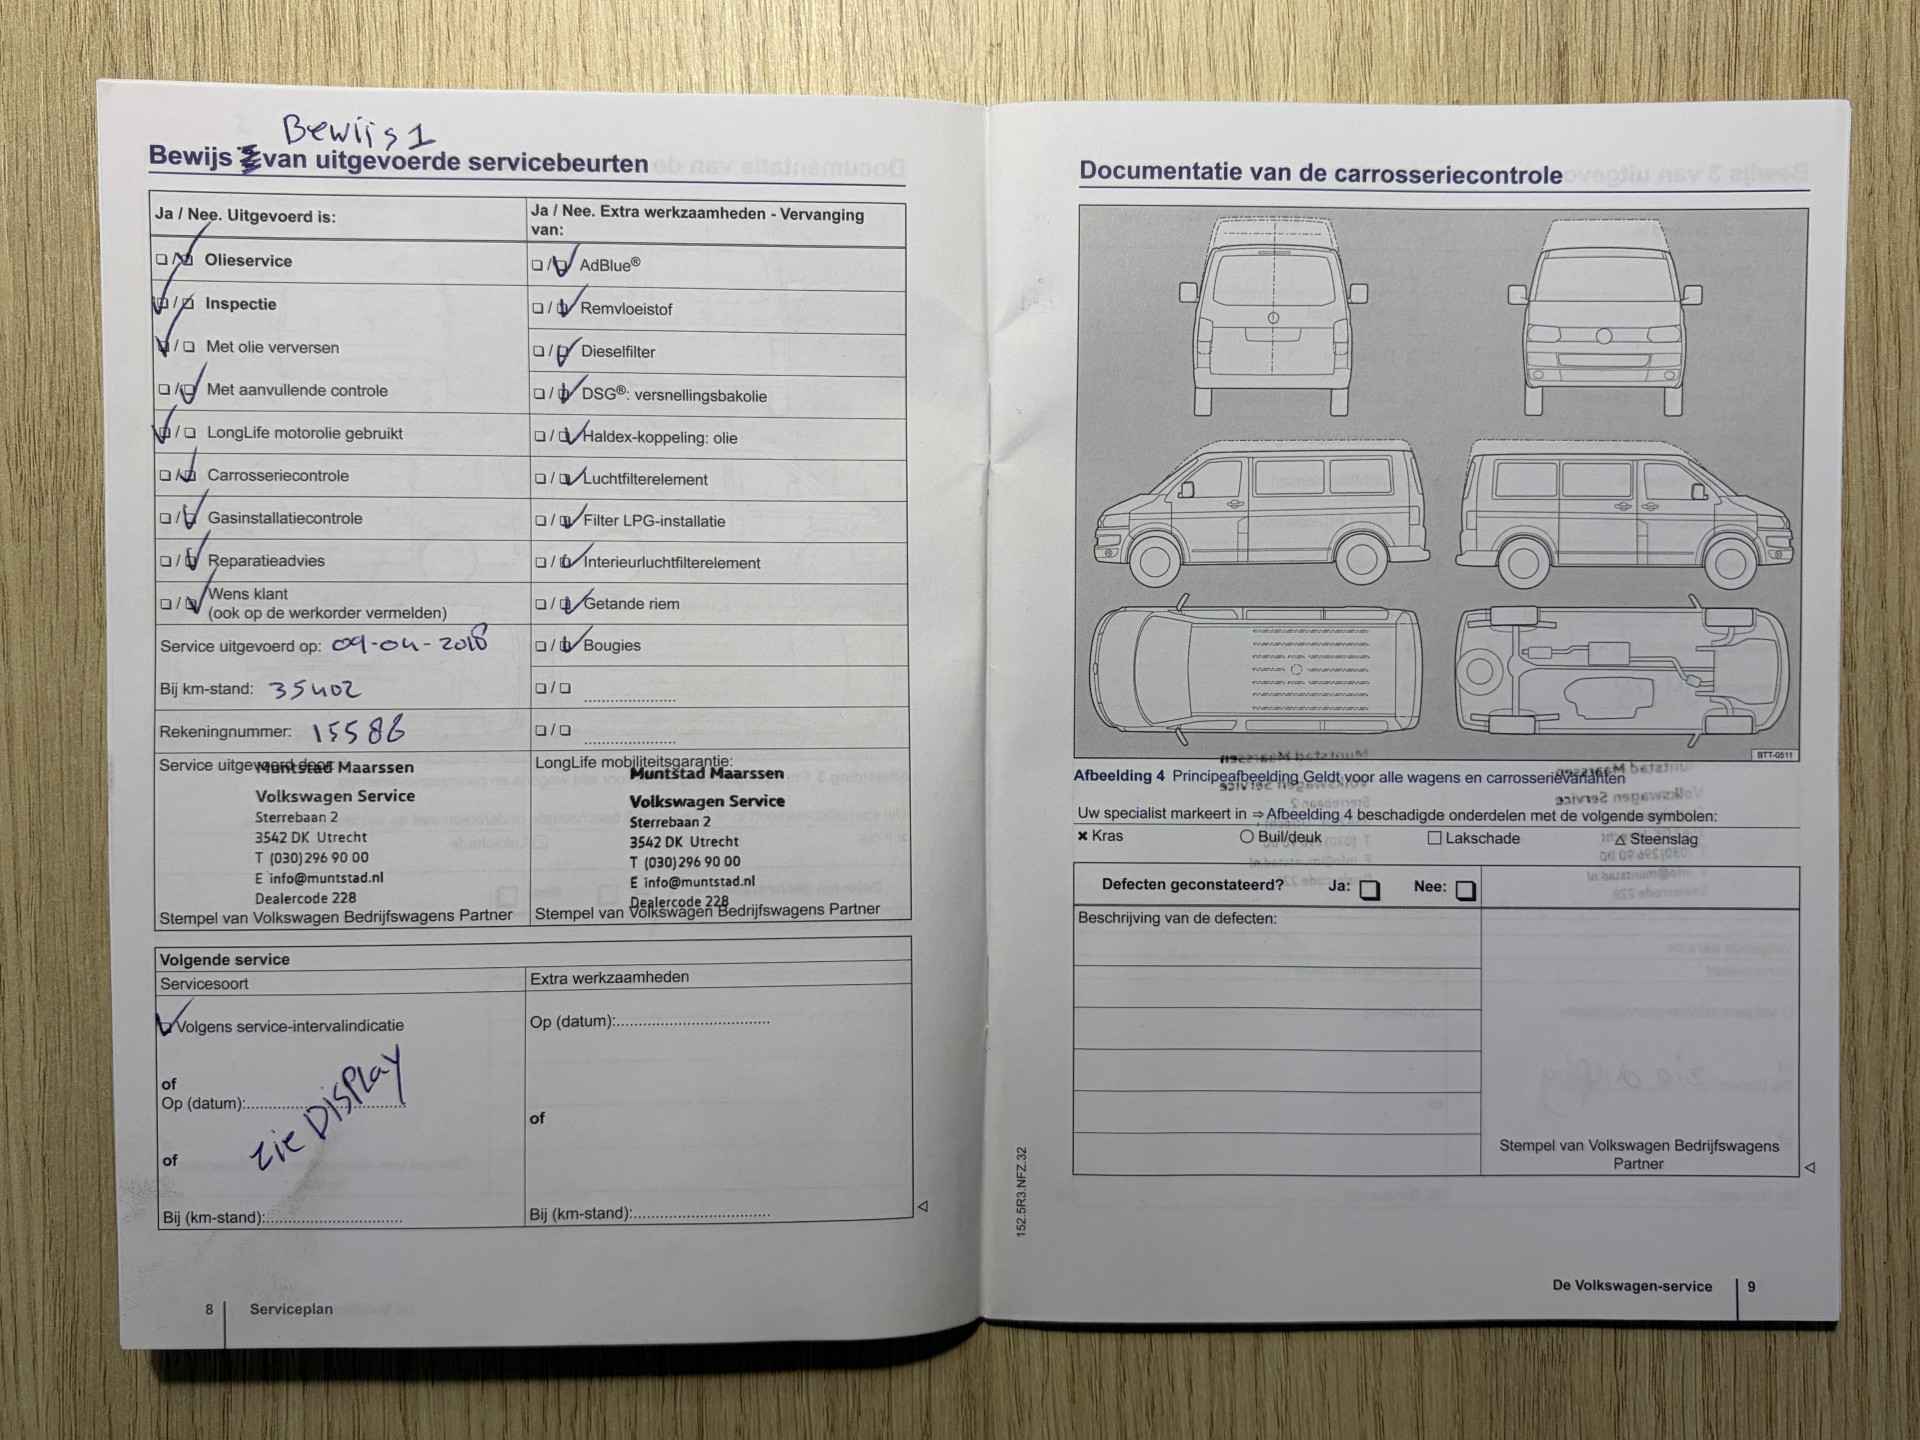 Bewijs 1
Bewijs van uitgevoerde servicebeurten
Ja / Nee. Uitgevoerd is:
❏ / ❏ Olieservice
❏ / ❏ Inspectie
❏ / ❏ Met olie verversen
❏ / ❏ Met aanvullende controle
❏ / ❏ LongLife motorolie gebruikt
❏ / ❏ Carrosseriecontrole
❏ / ❏ Gasinstallatiecontrole
❏ / ❏ Reparatieadvies
❏ / ❏ Wens klant
(ook op de werkorder vermelden)
Service uitgevoerd op: 09-04-2018
Bij km-stand: 35402
Rekeningnummer: 15586
Service uitgevoerd door:
Muntstad Maarssen
Volkswagen Service
Sterrebaan 2
3542 DK Utrecht
T (030)296 90 00
E info@muntstad.nl
Dealercode 228
Stempel van Volkswagen Bedrijfswagens Partner
Ja / Nee. Extra werkzaamheden - Vervanging
van:
❏ / ❏ AdBlue®
❏ / ❏ Remvloeistof
❏ / ❏ Dieselfilter
❏ / ❏ DSG®: versnellingsbakolie
❏ / ❏ Haldex-koppeling: olie
❏ / ❏ Luchtfilterelement
❏ / ❏ Filter LPG-installatie
❏ / ❏ Interieurluchtfilterelement
❏ / ❏ Getande riem
❏ / ❏ Bougies
❏ / ❏ .....................
❏ / ❏ .....................
LongLife mobiliteitsgarantie:
Muntstad Maarssen
Volkswagen Service
Sterrebaan 2
3542 DK Utrecht
T (030)296 90 00
E info@muntstad.nl
Dealercode 228
Stempel van Volkswagen Bedrijfswagens Partner
Volgende service
Servicesoort
❏ Volgens service-intervalindicatie
of
Op (datum):...................................
zie DISPLAY
of
Bij (km-stand):..............................
Extra werkzaamheden
Op (datum):..................................
of
Bij (km-stand):..............................
8 Serviceplan
Documentatie van de carrosseriecontrole
BTT-0511
Afbeelding 4 Principeafbeelding Geldt voor alle wagens en carrosserievarianten
Uw specialist markeert in ⇒ Afbeelding 4 beschadigde onderdelen met de volgende symbolen:
✖ Kras ○ Buil/deuk □ Lakschade △ Steenslag
Defecten geconstateerd? Ja: ❏ Nee: ❏
Beschrijving van de defecten:
Stempel van Volkswagen Bedrijfswagens
Partner
152.5R3.NFZ.32
De Volkswagen-service 9